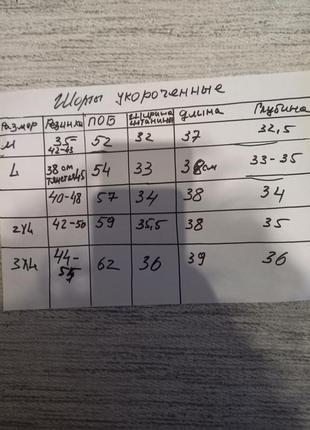 Шорты укороченные
Размер Резинка ПОБ Ширина штанины Длина Глубина
M 35 42-43 52 32 37 32,5
L 38 см 54 33 38см 33-35
40-48 57 34 38 34
2XL 42-50 59 35,5 38 35
3XL 44-57 62 36 39 36